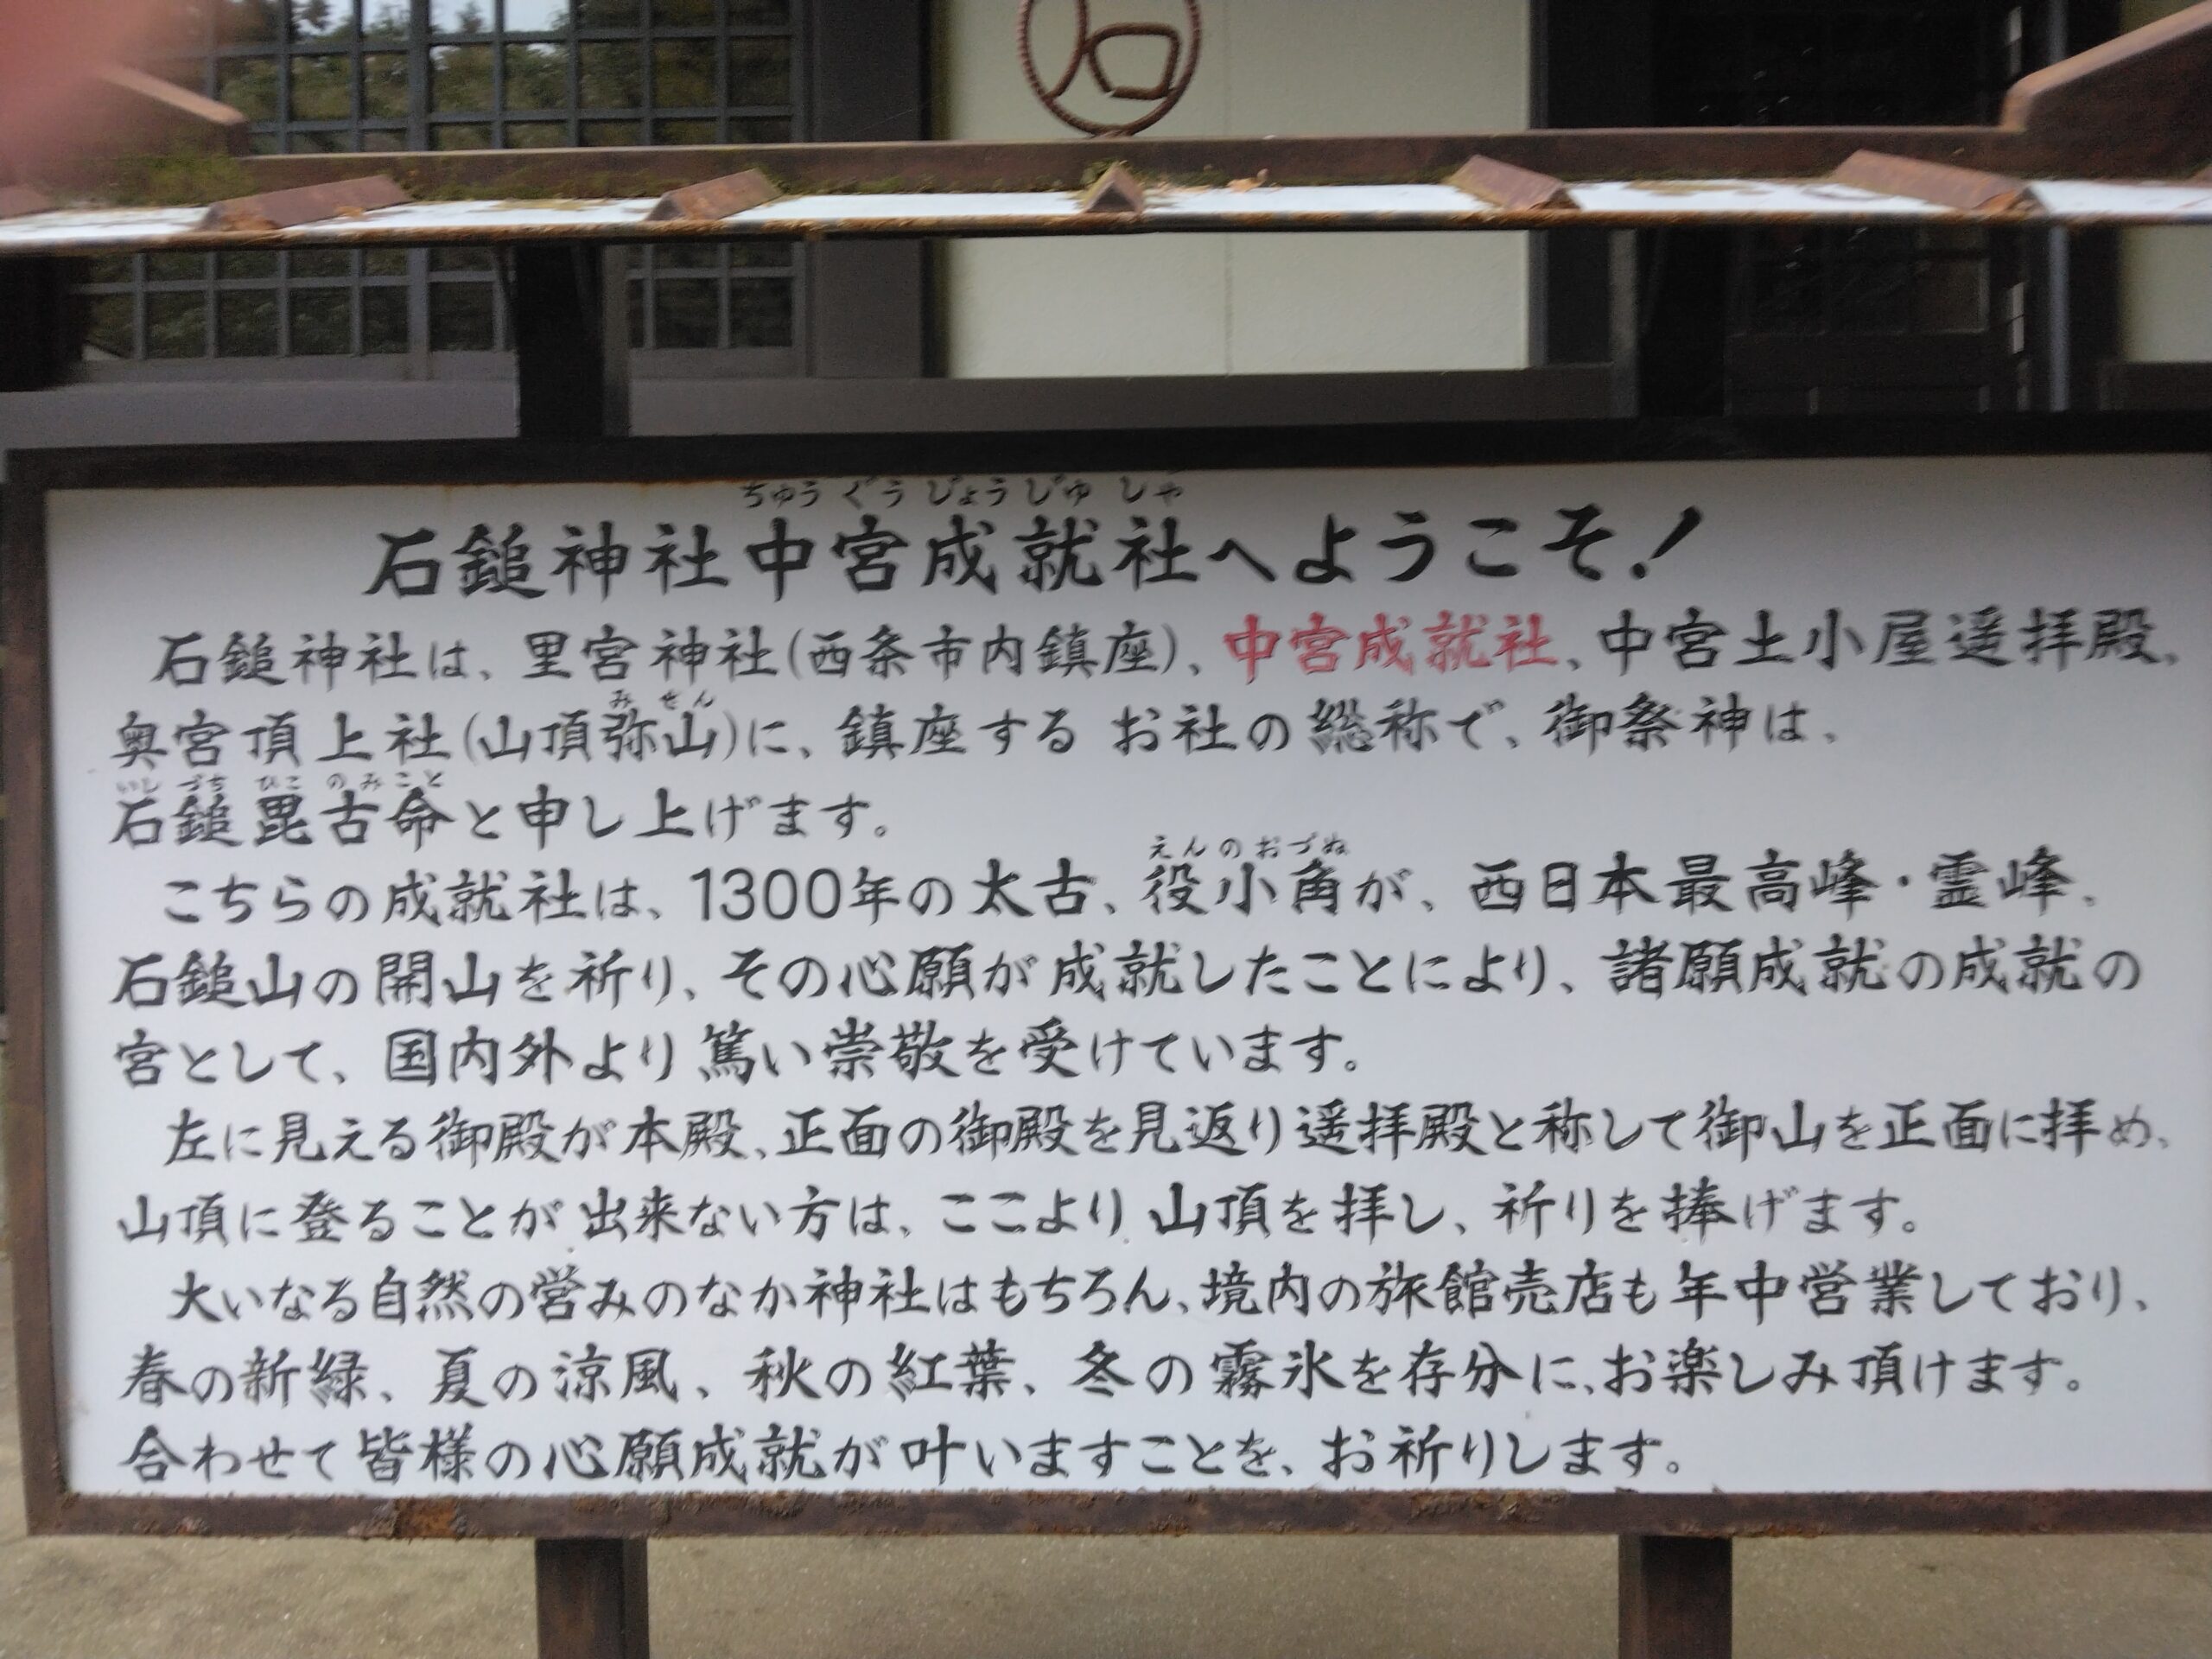 石
ちゅうぐうじょうじゅしゃ
石鎚神社中宮成就社へようこそ！
石鎚神社は、里宮神社(西条市内鎮座)、中宮成就社、中宮土小屋遥拝殿、
みせん
奥宮頂上社(山頂弥山)に、鎮座するお社の総称で、御祭神は、
いしづちひこのみこと
石鎚毘古命と申し上げます。
えんのおづぬ
こちらの成就社は、1300年の太古、役小角が、西日本最高峰・霊峰、
石鎚山の開山を祈り、その心願が成就したことにより、諸願成就の成就の
宮として、国内外より篤い崇敬を受けています。
左に見える御殿が本殿、正面の御殿を見返り遥拝殿と称して御山を正面に拝め、
山頂に登ることが出来ない方は、ここより山頂を拝し、祈りを捧げます。
大いなる自然の営みのなか神社はもちろん、境内の旅館売店も年中営業しており、
春の新緑、夏の涼風、秋の紅葉、冬の霧氷を存分に、お楽しみ頂けます。
合わせて皆様の心願成就が叶いますことを、お祈りします。